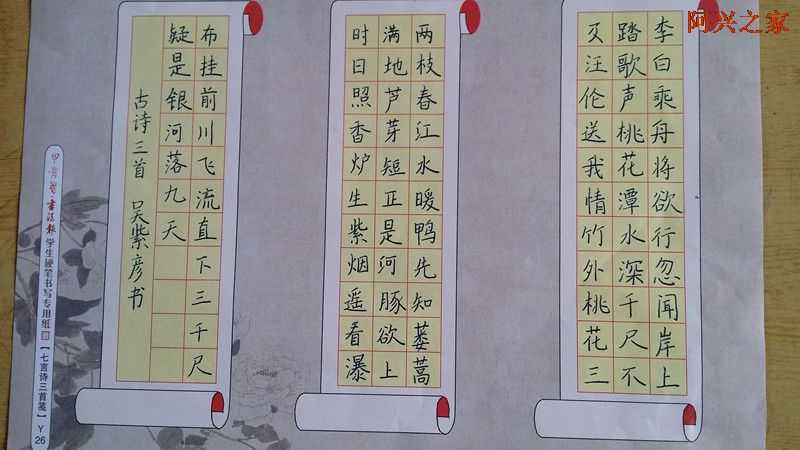 阿兴之家
李白乘舟将欲行忽闻岸上
踏歌声桃花潭水深千尺不
及汪伦送我情竹外桃花三
两枝春江水暖鸭先知蒌蒿
满地芦芽短正是河豚欲上
时日照香炉生紫烟遥看瀑
布挂前川飞流直下三千尺
疑是银河落九天
古诗三首 吴紫彦书
书法报 学生硬笔书写专用纸【七言诗三首笺】Y 26